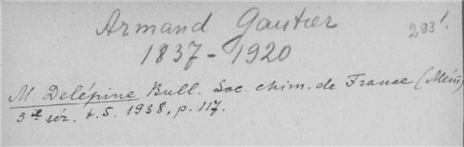 Armand Gautier
293¹.
1837-1920
M. Delépine Bull. Soc. chim. de France (Mém)
5e sér. t. 5. 1938, p. 117.